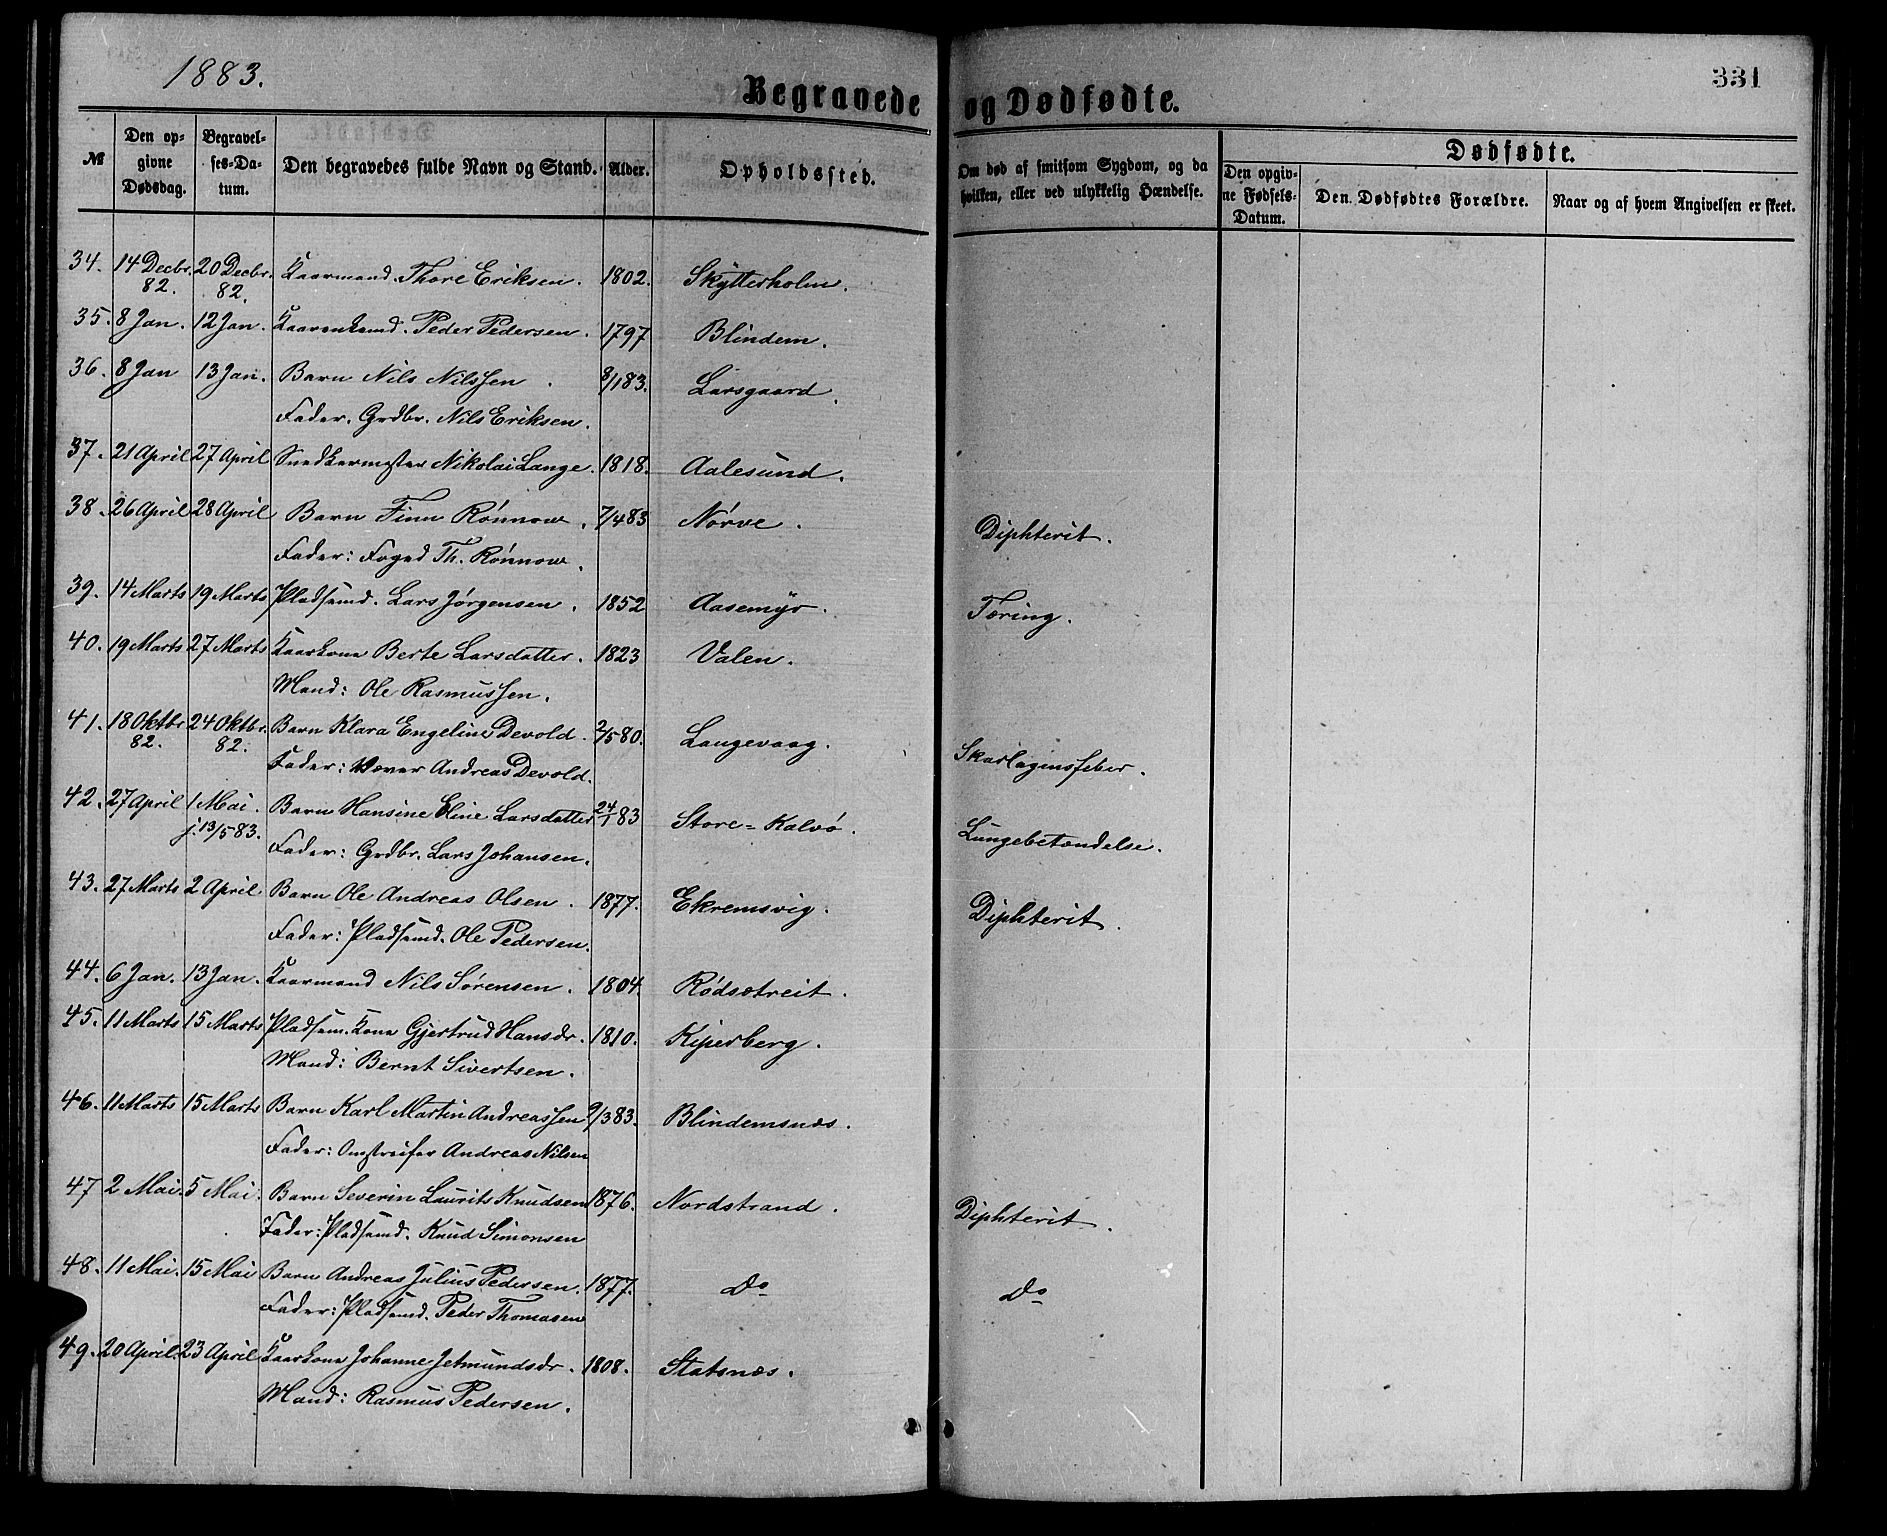 1883.
331
Begravede og Dødfødte.
№ Den opgivne Dødsdag. Begravelses-Datum. Den begravedes fulde Navn og Stand. Alder. Opholdssted. Om død af smitsom Sygdom, og da hvilken, eller ved ulykkelig Hændelse. Dødfødte. Den opgivne Fødsels-Datum. Den Dødfødtes Forældre. Naar og af hvem Angivelsen er skeet.
34. 14 Decbr. 82. 20 Decbr. 82. Kaarmand Thore Eriksen. 1802. Skytterholm.
35. 8 Jan. 12 Jan. Peder Pedersen. 1797 Blindem.
36. 8 Jan 13 Jan. Barn Nils Nilssen. 8/183. Larsgaard.
Fader. Grdbr. Nils Eriksen.
37. 21 April 27 April Snedkermester Nikolai Lange. 1818. Aalesund.
38. 26 April 28 April Barn Finn Rönnow. 7/483 Nørve. Diphterit.
Fader: Foged Th. Rönnow.
39. 14 Marts 19 Marts Pladsmd. Lars Jørgensen. 1852 Aasemyr. Tæring.
40. 19 Marts 27 Marts Kaarkone Berte Larsdatter. 1823 Valen.
Mand: Ole Rasmussen.
41. 18 Oktbr 82. 24 Oktbr. 82. Barn Klara Engeline Devold. 2/580. Langevaag. Skarlaginsfeber.
Fader: Væver Andreas Devold.
42. 27 April 1 Mai. j. 13/583. Barn Hansine Eline Larsdatter 24/183 Store-Kalvö. Lungebetændelse.
Fader: Grdbr. Lars Johansen.
43. 27 Marts 2 April Barn Ole Andreas Olsen. 1877. Ekremsvig. Diphterit.
Fader: Pladsmd. Ole Pedersen.
44. 6 Jan. 13 Jan. Kaarmand Nils Sørensen. 1804. Rødsætreit.
45. 11 Marts 15 Marts Pladsm. Kone Gjertrud Hansdr. 1810. Kiperberg.
Mand: Bernt Sivertsen.
46. 11 Marts 15 Marts Barn Karl Martin Andreassen 9/383. Blindemsnæs.
Fader: Omstreifer Andreas Nilsen
47 2 Mai. 5 Mai. Barn Severin Laurits Knudsen 1876. Nordstrand. Diphterit.
Fader: Pladsmd. Knud Simonsen
48. 11 Mai. 15 Mai Barn Andreas Julius Pedersen. 1877. Do Do
Fader: Pladsmd. Peder Thomasen
49. 20 April. 23 April Kaarkone Johanne Jetmundsdr. 1808. Statsnæs.
Mand: Rasmus Pedersen.